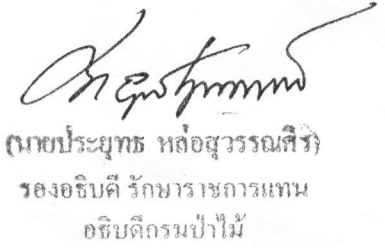 (นายประยุทธ หล่อสุวรรณศิริ)
รองอธิบดี รักษาราชการแทน
อธิบดีกรมป่าไม้